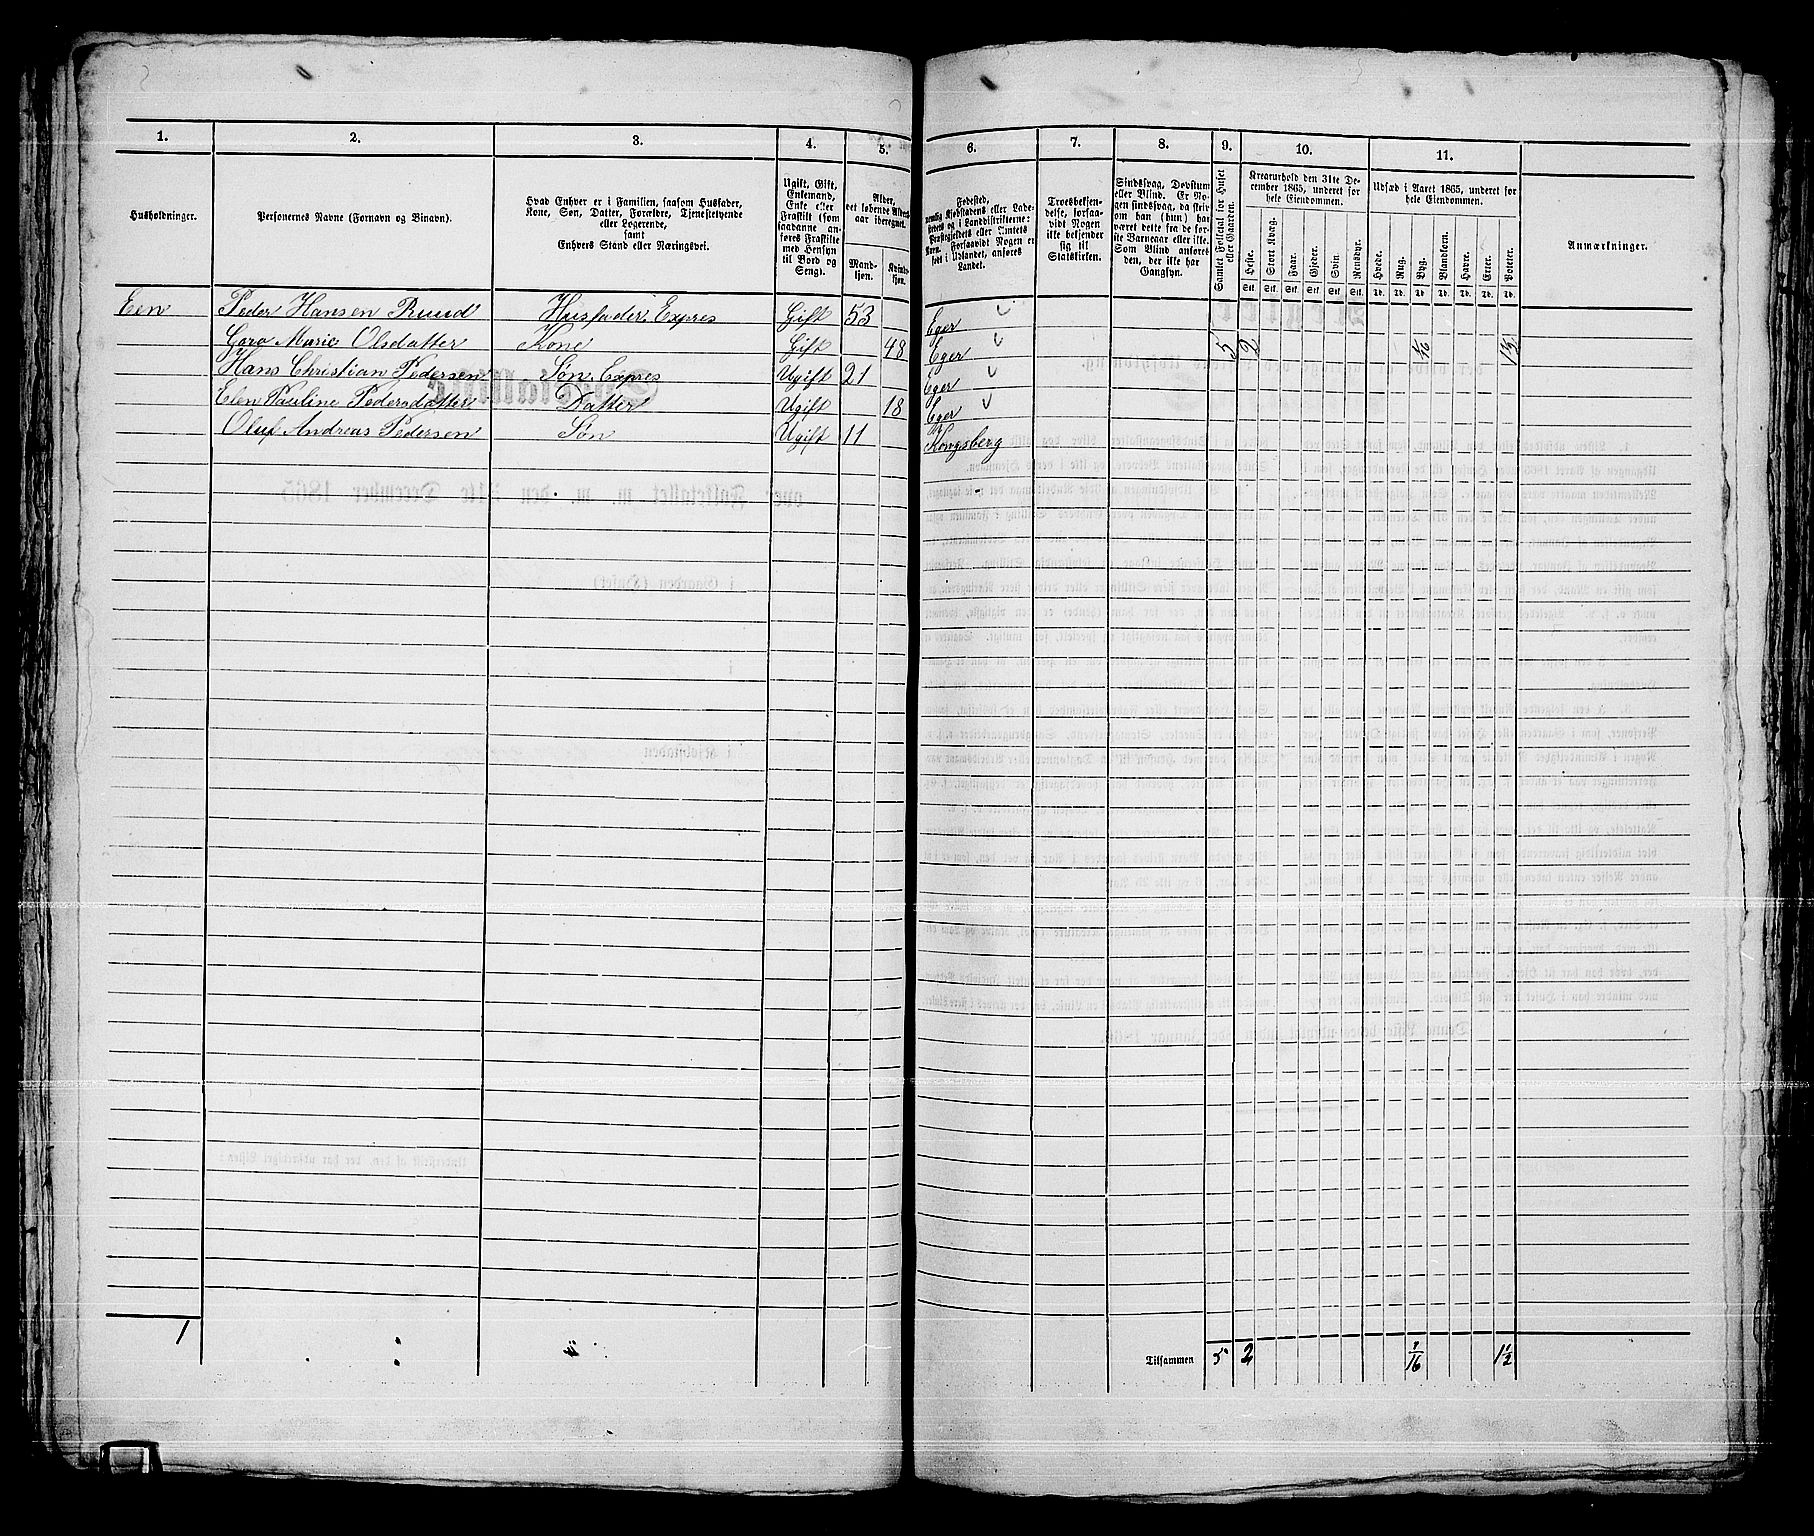 1. 2. 3. 4. 5. 6. 7. 8. 9. 10. 11.
Husholdninger.
Personernes Navne (Fornavn og Binavn).
Hvad Enhver er i Familien, saasom Husfader,
Kone, Søn, Datter, Forældre, Tjenestetyende
eller Logerende,
samt
Enhvers Stand eller Næringsvei.
Ugift, Gift,
Enkemand,
Enke eller
Fraskilt (som
saadanne an-
føres Fraskilte
med Hensyn
til Bord og
Seng).
Alder,
det løbende Alders-
aar iberegnet.
Mand-
kjøn.
Kvind-
kjøn.
Fødested,
nemlig Kjøbstadens eller Lade-
stedets og i Landdistrikterne:
Præstegjeldets eller Amtets
Navn. Forsaavidt Nogen er
født i Udlandet, anføres
Landet.
Troesbekjen-
delse, forsaa-
vidt Nogen
ikke bekjender
sig til
Statskirken.
Sindssvag, Døvstum
eller Blind. Er No-
gen sindssvag, da skriv
om han (hun) har
været dette fra de før-
ste Barneaar eller ikke.
Som Blind anføres
den, der ikke har
Gangsyn.
Samlet Folketal for Huset
eller Gaarden.
Kreaturhold den 31te De-
cember 1865, underet for
hele Eiendommen.
Heste. Stort Kvæg. Faar. Gjeder. Svin. Rensdyr.
Stk. Stk. Stk. Stk. Stk. Stk.
Udsæd i Aaret 1865, underet for
hele Eiendommen.
Hvede. Rug. Byg. Blandkorn. Havre. Erter. Poteter.
Td. Td. Td. Td. Td. Td. Td.
Anmærkninger.
Een Peder Hansen Ruud Husfader, Expres Gift 53 Eger
Goro Marie Olsdatter Kone Gift 48 Eger 5 2 1/16 1 1/2
Hans Christian Pedersen Søn Expres Ugift 21 Eger
Elen Pauline Pedersdatter Datter Ugift 18 Eger
Oluf Andreas Pedersen Søn Ugift 11 Kongsberg
1 Tilsammen 5 2 1/16 1 1/2